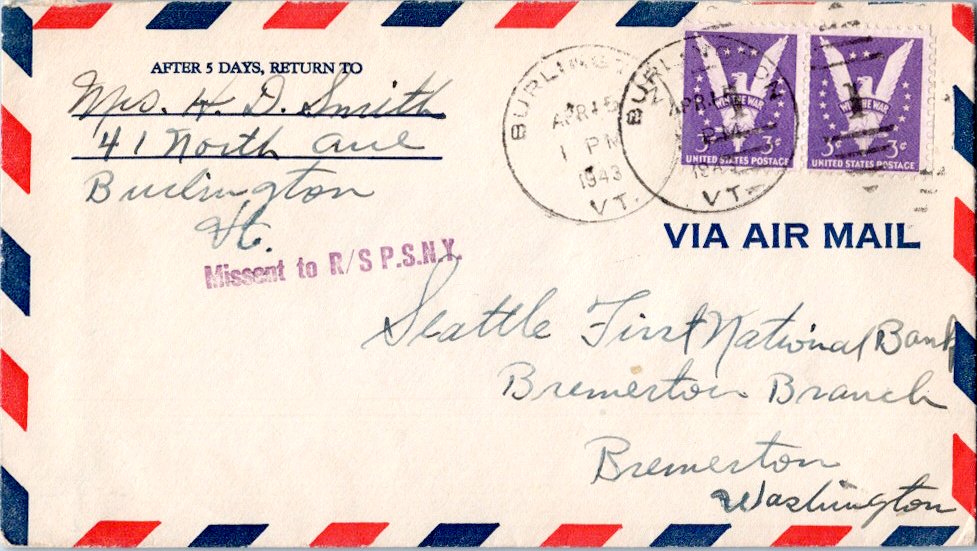 AFTER 5 DAYS, RETURN TO
Mrs. H. D. Smith
41 North Ave
Burlington
Vt.
Missent to R/S P.S.N.Y.
BURLINGTON
APR 15
1 PM
1943
VT.
BURLINGTON
APR 15
PM
VT.
WIN THE WAR
3¢ 3¢
UNITED STATES POSTAGE
WIN THE WAR
3¢ 3¢
UNITED STATES POSTAGE
VIA AIR MAIL
Seattle First National Bank
Bremerton Branch
Bremerton
Washington